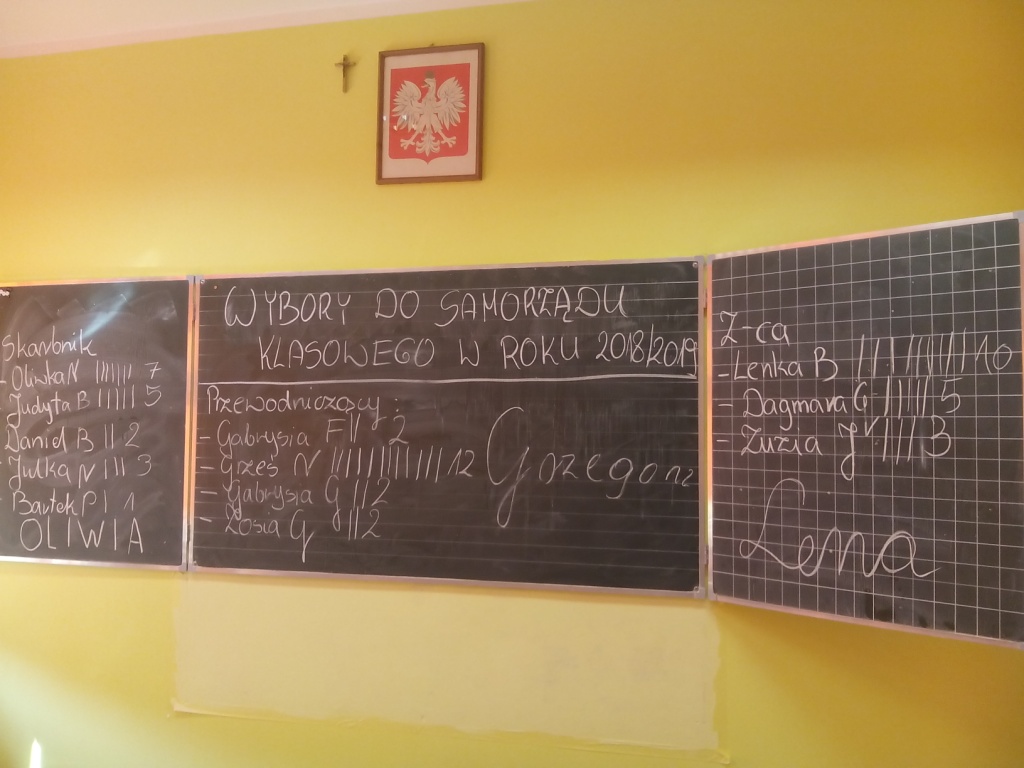 Skarbnik
- Oliwka N |||||| 7
Judyta B ||||| 5
Daniel B || 2
Julka N ||| 3
Bartek P | 1
OLIWIA
WYBORY DO SAMORZĄDU
KLASOWEGO W ROKU 2018/2019
Przewodniczący:
- Gabrysia F || 2
- Grześ N |||||||||||| 12
- Gabrysia G || 2
- Zosia G || 2
Grzegorz
Z-ca
- Lenka B |||||||||| 10
- Dagmara G ||||| 5
- Zuzia J |||| 3
Lena